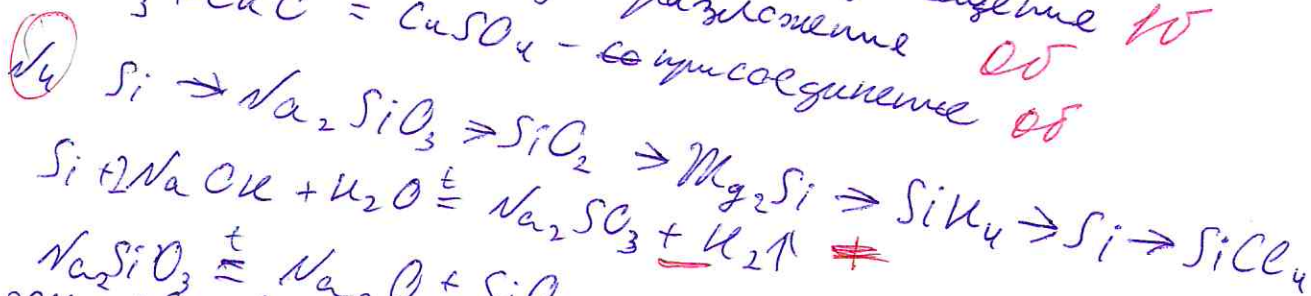 = CuSO₄ - присоединение 0б
разложение 0б
1б
№4 Si → Na₂SiO₃ → SiO₂ → Mg₂Si → SiH₄ → Si → SiCl₄
Si + 2NaOH + H₂O =ᵗ Na₂SO₃ + H₂↑ +
Na₂SiO₃ =ᵗ